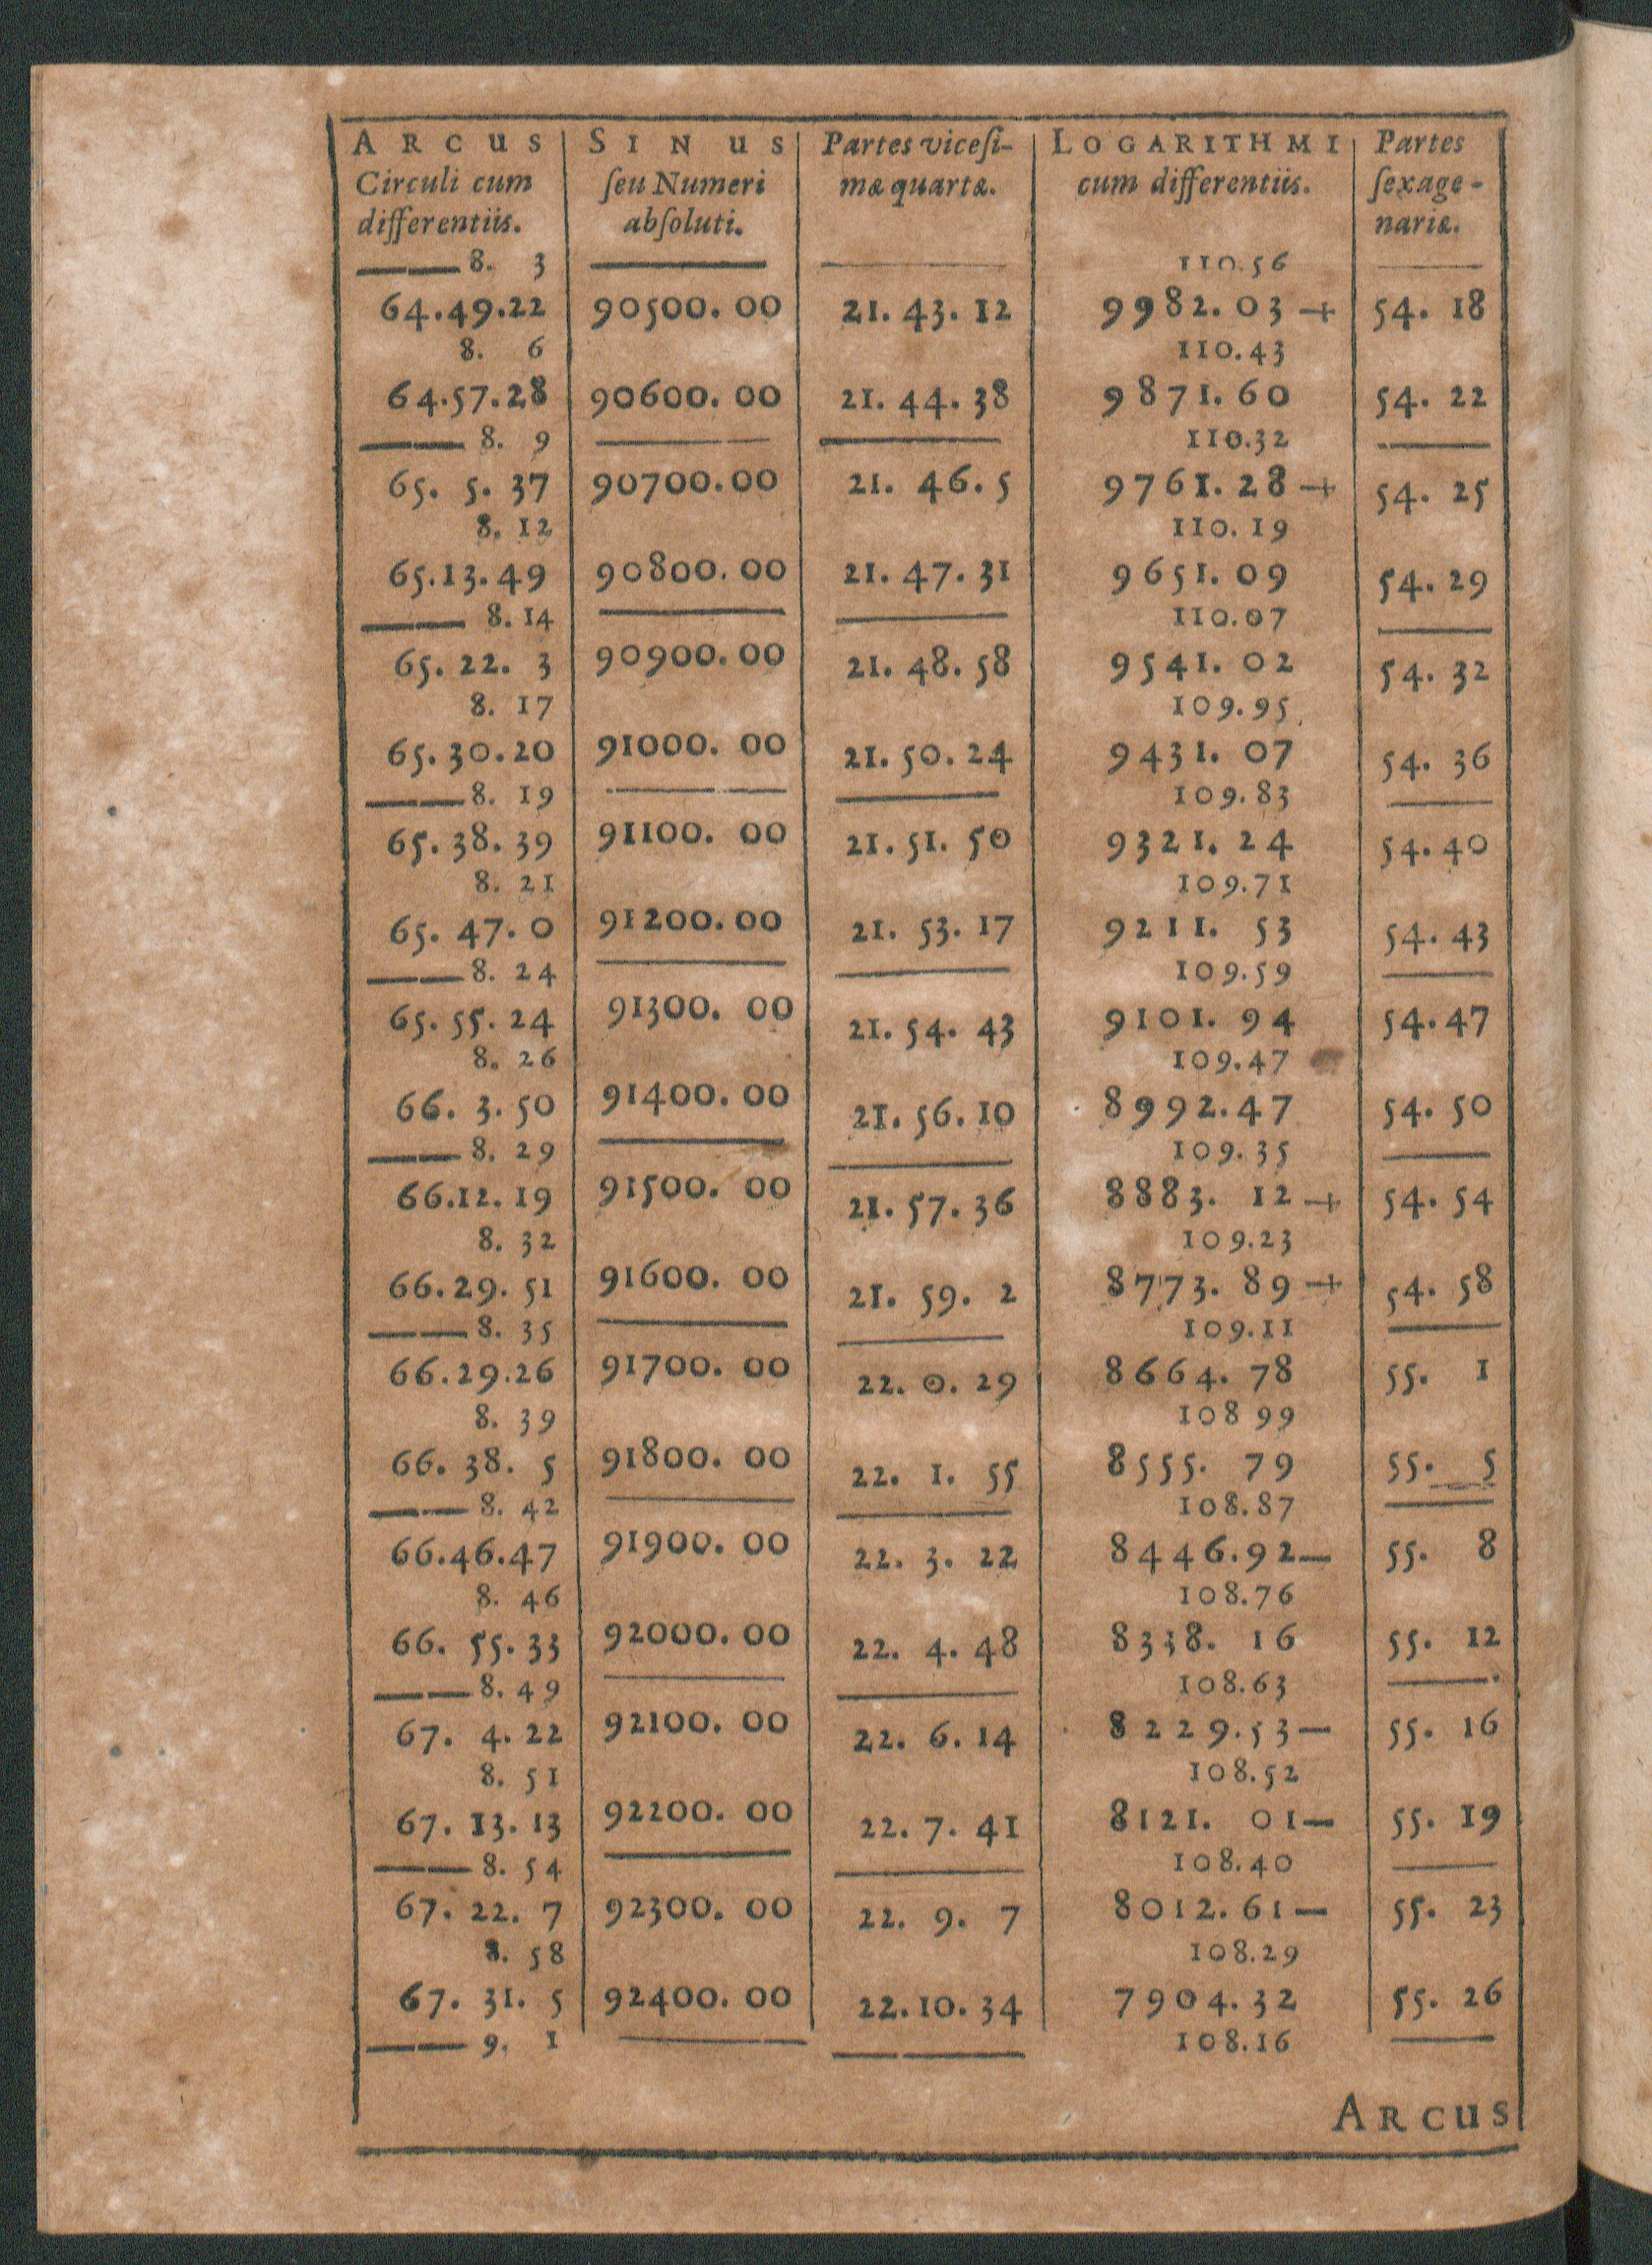 ARCUS SINUS Partes viceſi- LOGARITHMI Partes
Circuli cum ſeu Numeri mæ quartæ. cum differentiis. ſexage-
differentiis. abſoluti. nariæ.
8. 3 110.56
64.49.22 90500.00 21.43.12 9982.03+ 54.18
8. 6 110.43
64.57.28 90600.00 21.44.38 9871.60 54.22
8. 9 110.32
65. 5. 37 90700.00 21. 46. 5 9761.28+ 54. 25
8. 12 110.19
65.13.49 90800.00 21.47.31 9651.09 54.29
8.14 110.07
65. 22. 3 90900.00 21.48.58 9541.02 54.32
8. 17 109.95
65.30.20 91000.00 21.50.24 9431.07 54.36
8. 19 109.83
65.38.39 91100.00 21.51.50 9321.24 54.40
8. 21 109.71
65. 47. 0 91200.00 21.53.17 9211.53 54.43
8. 24 109.59
65.55.24 91300.00 21.54.43 9101.94 54.47
8. 26 109.47
66. 3. 50 91400.00 21.56.10 8992.47 54.50
8. 29 109.35
66.12.19 91500.00 21.57.36 8883.12+ 54.54
8. 32 109.23
66.29.51 91600.00 21. 59. 2 8773.89+ 54.58
8. 35 109.11
66.29.26 91700.00 22. 0. 29 8664.78 55. 1
8. 39 108 99
66. 38. 5 91800.00 22. 1. 55 8555.79 55. 5
8. 42 108.87
66.46.47 91900.00 22. 3. 22 8446.92— 55. 8
8. 46 108.76
66.55.33 92000.00 22. 4. 48 8338.16 55. 12
8. 49 108.63
67. 4. 22 92100.00 22. 6. 14 8229.53— 55. 16
8. 51 108.52
67.13.13 92200.00 22. 7. 41 8121.01— 55. 19
8. 54 108.40
67. 22. 7 92300.00 22. 9. 7 8012.61— 55. 23
8. 58 108.29
67. 31. 5 92400.00 22.10.34 7904.32 55. 26
9. 1 108.16
ARCUS